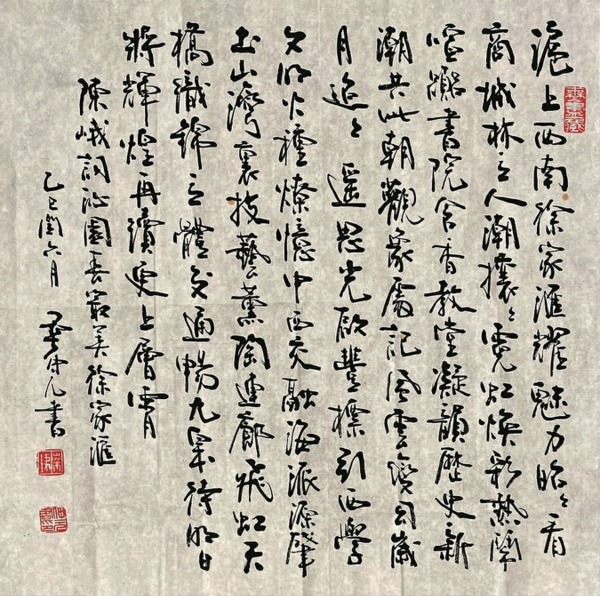 滬上西南徐家滙耀魅力昭々看
商城林立人潮攘々霓虹煥彩熱鬧
喧書院含香教堂凝韻歷史新
潮共此朝觀象處記風雲變幻歲
月迢々遥思光啟豐標引西學
文明火種燎憶中西交融海派源肇
土山灣裏技藝薰陶連廊飛虹天
橋織錦立體交通暢九皋待明日
將輝煌再續更上層霄
陳峨詞沁園春最美徐家滙
乙巳閏六月 書